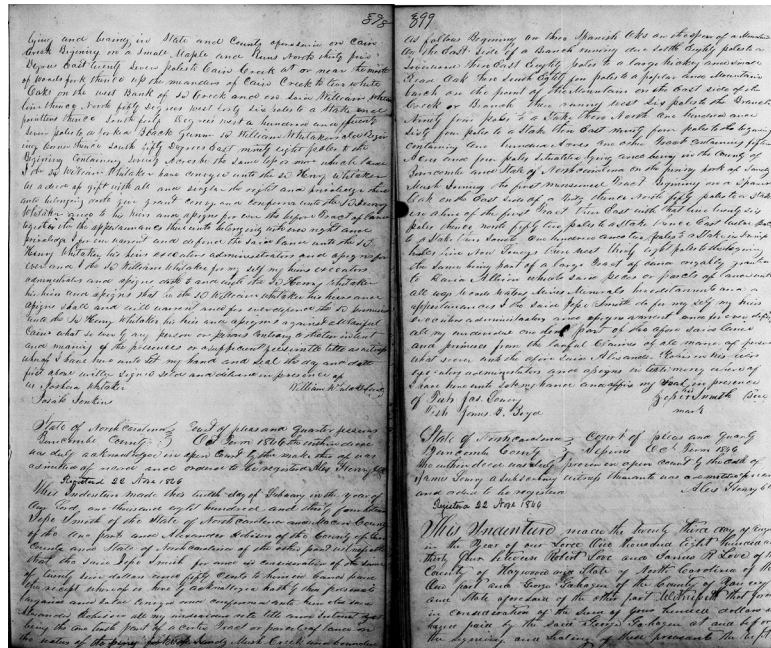 398
lying and being in State and County aforesaid on Cain
Creek Begining on a Small Maple and Runs North thirty five
Degrees East twenty seven poles to Cain Creek at or near the mouth
of Woods fork thence up the meanders of Cain Creek to two white
Oaks on the west Bank of sd Creek and on sd William Whitakers
line thence North fifty six degrees west sixty six poles to a Stake and
pointers thence South fifty Degrees west a hundred and
seven poles to a Black Gum sd William Whitakers Begin
ing corner thence south fifty degrees East ninety eight poles to the
Begining Containing seventy Acres be the same less or more which land
I the sd William Whitaker have conveyed unto the sd Henry Whitaker
as a deed of gift with all and singler the right and priviledge there
unto belonging doth give grant convey and confirm unto the sd Henry
Whitaker and to his heirs and assigns for ever the before Tract of Land
together the appertainances thereunto belonging with every right and
priviledge I for ever warrant and defend the said land unto the sd
Henry Whitaker his heirs executors administrators and assigns for
ever and I the sd William Whitaker for my self my heirs executors
administrators and assigns doth to and with the sd Henry Whitaker
his heirs and assigns that is the sd William Whitaker his heirs and
assigns shall and will warrant and for ever defend the sd premises
unto the sd Henry Whitaker his heirs and assigns against all lawful
Claim what so ever of any person or persons
and meaning of the presences a sufficient title as witness
whereof I have here unto set my hand and seal the day and date
first above written Signed Sealed and delivered in presence of
us Joshua Whitaker William Whitaker (seal)
Josiah Jenkins
State of North Carolina } Court of pleas and Quarter Sessions
Buncombe County } Oct Term 1846 the within deed
was duly acknowledged in open Court by the maker there of was
admitted of record and ordered to be registered Alex Henry
Registered 22 Nov 1846
This Indenture made this day of February in the year of
our Lord one thousand eight hundred and thirty four between
Zepe Smith of the State of North Carolina and Macon County
of the one part and Alexander Robison of the County of
County and State of North Carolina of the other part witnesseth
that the said Zepe Smith for and in consideration of the sum
of twenty nine dollars and fifty Cents to him in hand paid
the receipt where of is here by acknowledged hath by these presents
bargained and sold conveyed and confirmed unto him the said
Alexander Robison all my undivided title and interest
being the one tenth part of a certain Tract or parcel of land on
the waters of the piney fork of Sandy Mush Creek and bounded
399
as follows Begining on three Spanish Oaks on the spur of a Mountain
On the East side of a Branch runing due south Eighty poles to a
Sourwood then East Eighty poles to a large hickory and small
Read Oak then South Eighty four poles to a poplar and Mountain
burch on the point of the Mountain on the East side of the
Creek or Branch then runing west Six poles to the Branch
Ninety four poles to a Stake then North one hundred and
sixty four poles to a Stake then East ninety four poles to the begining
containing one hundred Acres one other Tract containing fifteen
Acres and four poles situated lying and being in the County of
Buncombe and State of North Carolina on the piney fork of Sandy
Mush Joining the first mentioned Tract Begining on a Spanish
Oak on the East side of a thence North fifty poles to a Stake
in a line of the first Tract then East with that line twenty six
poles thence North fifty two poles to a Stake then East twelve poles
to a Stake then South one hundred and two poles to a Stake
then west thirty eight poles to the begining
the same being part of a large Tract of land orignally granted
to David Allison which said peice or parcle of land with
all ways woods Waters Mines Minerals hereditaments and
appertainances I the said Zepe Smith do for my self my heirs
Executors administrators and assigns warrant and for ever defend
all my undivided one tenth part of the afore said land
and premises from the lawful Claims of all maner of persons
what soever unto the afore said Alexander Robison his heirs
executors administrators and assigns in testimony where of
I have here unto set my hand and affix my seal in presence
of Test Jas. Lowry Zepe Smith Seal
Test James B. Boyd mark
State of North Carolina } Court of pleas and Quarter
Buncombe County } Sessions Oct Term 1846
the within deed was duly proven in open court by the oath of
James Lowry a Subscribing witness thereunto was admitted of record
and ordered to be registered Alex Henry
Registered 22 Nov 1846
This Indenture made the twenty third day of
in the Year of our Lord one thousand eight hundred and
thirty four between Robert Love and James R Love of the
County of Haywood and State of North Carolina of the
One part and George Gahagen of the County of Yancey
and State aforesaid of the other part Witnesseth that for
in consideration of the Sum of four hundred dollars
paid by the said George Gahagen at and before
the signing and sealing of these presents the